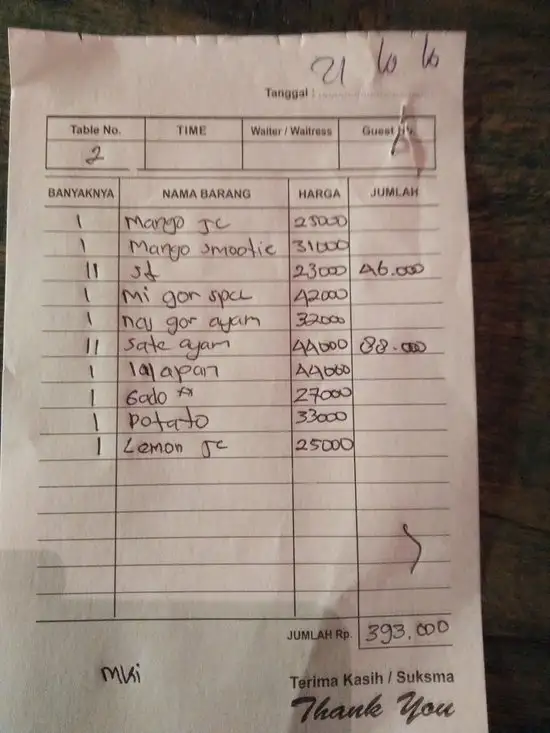 21
Tanggal :
Table No. TIME Waiter / Waitress Guest No.
2
BANYAKNYA NAMA BARANG HARGA JUMLAH
1 Mango Jc 25000
1 Mango smootie 31000
11 St 23000 46.000
1 Mi gor spcl 42000
1 nas gor ayam 32000
11 Sate ayam 44000 88.000
1 lalapan 44000
1 Gado 27000
1 Potato 33000
1 Lemon Jc 25000
JUMLAH Rp. 393.000
Mki
Terima Kasih / Suksma
Thank You